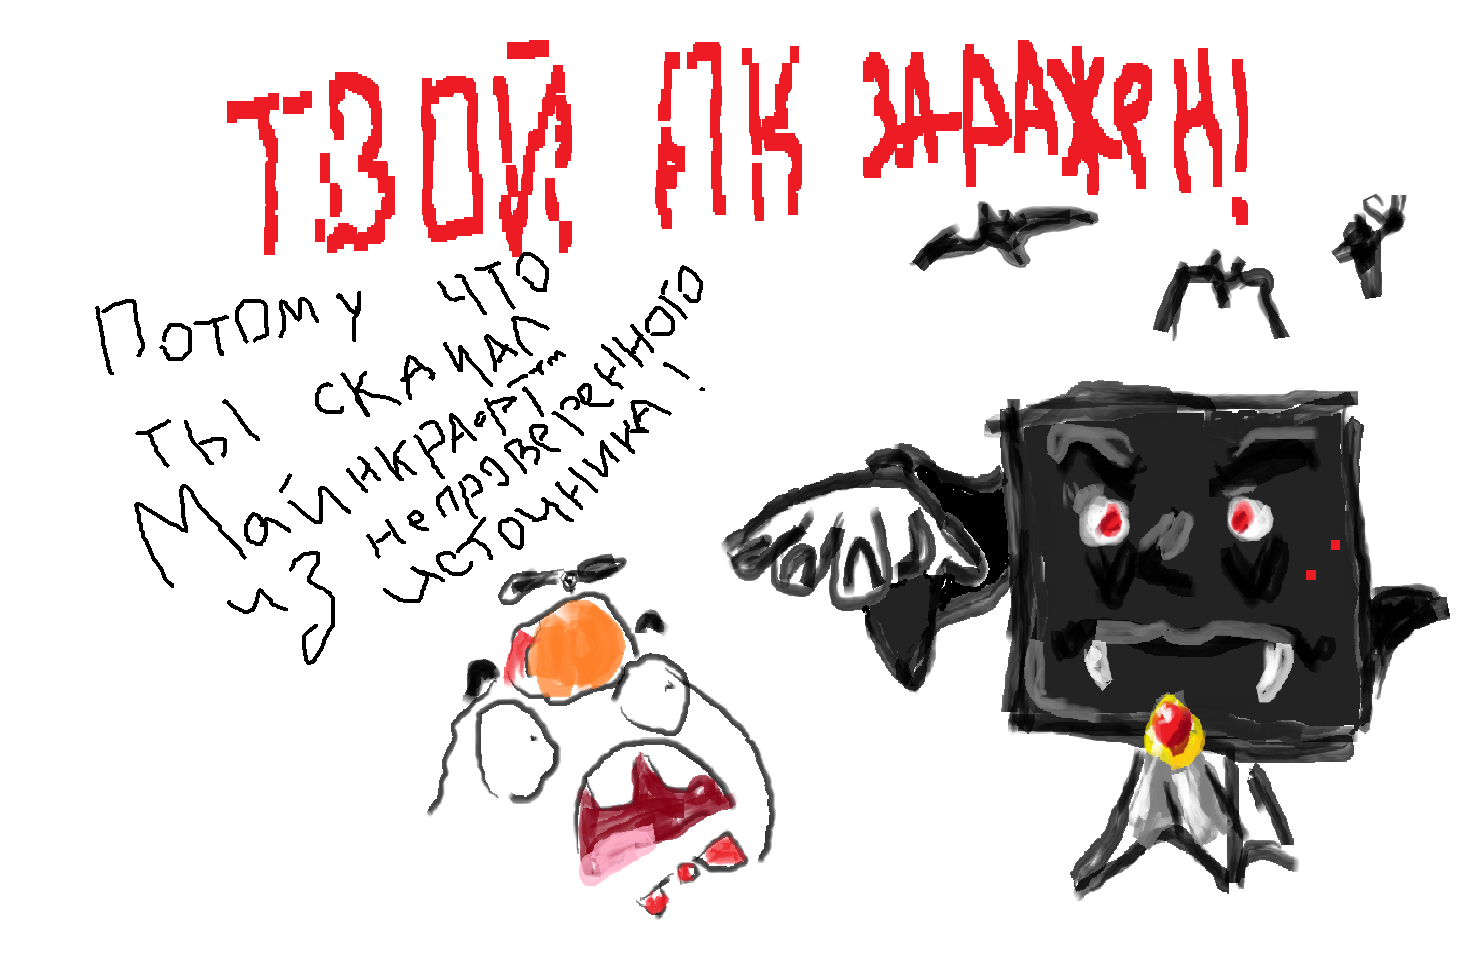 ТВОЙ ПК ЗАРАЖЕН!
Потому что
ты скачал
Майнкрафт™
из непроверенного
источника!